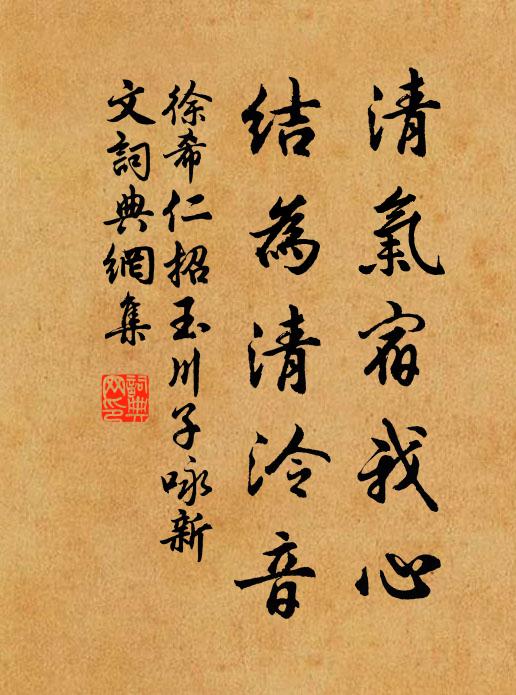 清氣宿我心
結為清泠音
徐希仁招玉川子咏新
文詞典網集
詞典網印